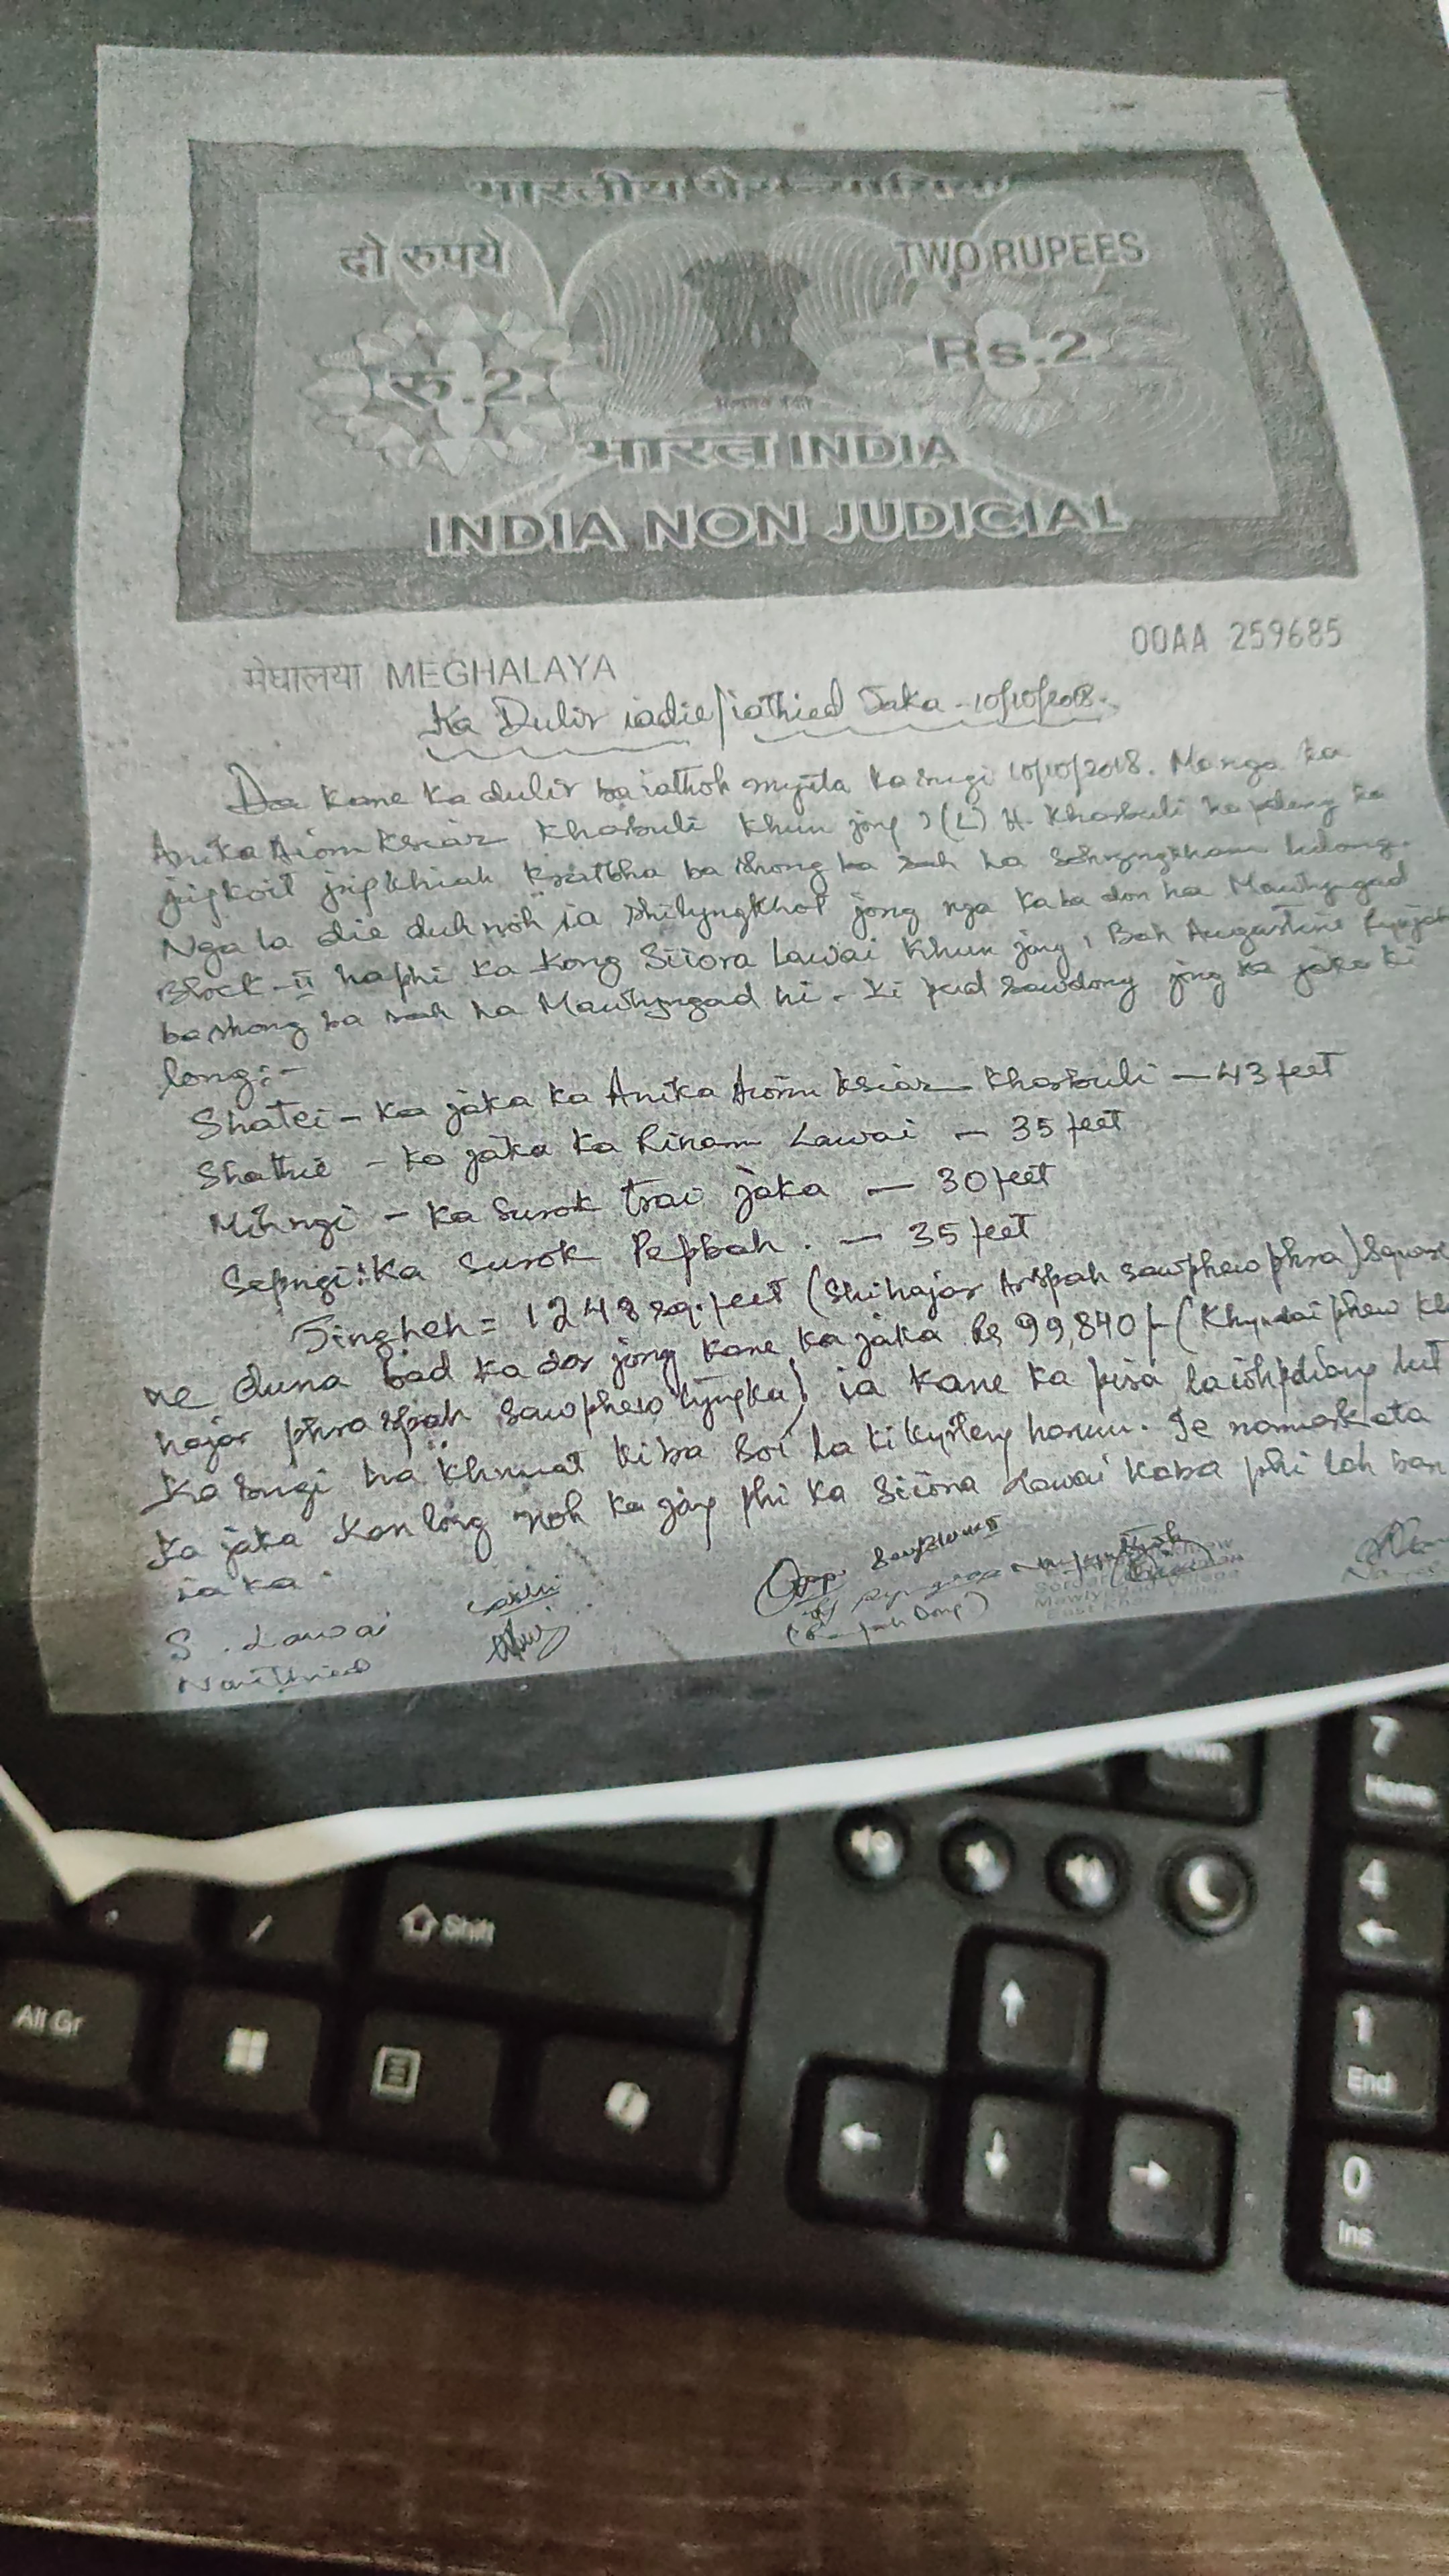 भारतीय गैर न्यायिक
दो रुपये TWO RUPEES
रु.2 Rs.2
भारत INDIA
INDIA NON JUDICIAL
मेघालया MEGHALAYA 00AA 259685
Ka Dulir iadie/iathied Jaka - 10/10/2018.
Da kane ka dulir ba iathoh mynta ka sngi 10/10/2018. Ma nga ka
Anika Aiom Ksiar Kharbuli khun jong (L) H. Kharbuli ha pdeng ka
jingkoit jingkhiah bsatbha ba shong ba sah ha
Nga la die duh noh ia shilyngkhot jong nga kaba don ha Mawtyngad
Block-II ha phi ka Kong Siiora Lawai khun jong, Bah Augustine
ba shong ba sah ha Mawtyngad hi. Ki pud sawdong jong ka jaka ki
long:-
Shatei - Ka jaka ka Anika Aiom Ksiar Kharbuli - 43 feet
Shathie - ka jaka ka Rikam Lawai - 35 feet
Mihngi - Ka Surok trai jaka - 30 feet
Sepngi: Ka Surok Pepbah. - 35 feet
Jingheh = 1248 sq.feet (Shihajar arspah sawphew phra) Square
ne duna bad ka dor jong kane ka jaka Rs 99,840/- (Khyndai phew
hajar phraspah sawphew tyngka) ia kane ka pisa la ioh pdiang lut
Ka sngi ha khmat kiba soi la ki kyrteng harum. Te naduh kata
ka jaka kan long noh ka jong phi ka Siiora Lawai kaba phi lah ban
ia ka.
S. Lawai
Nongthied